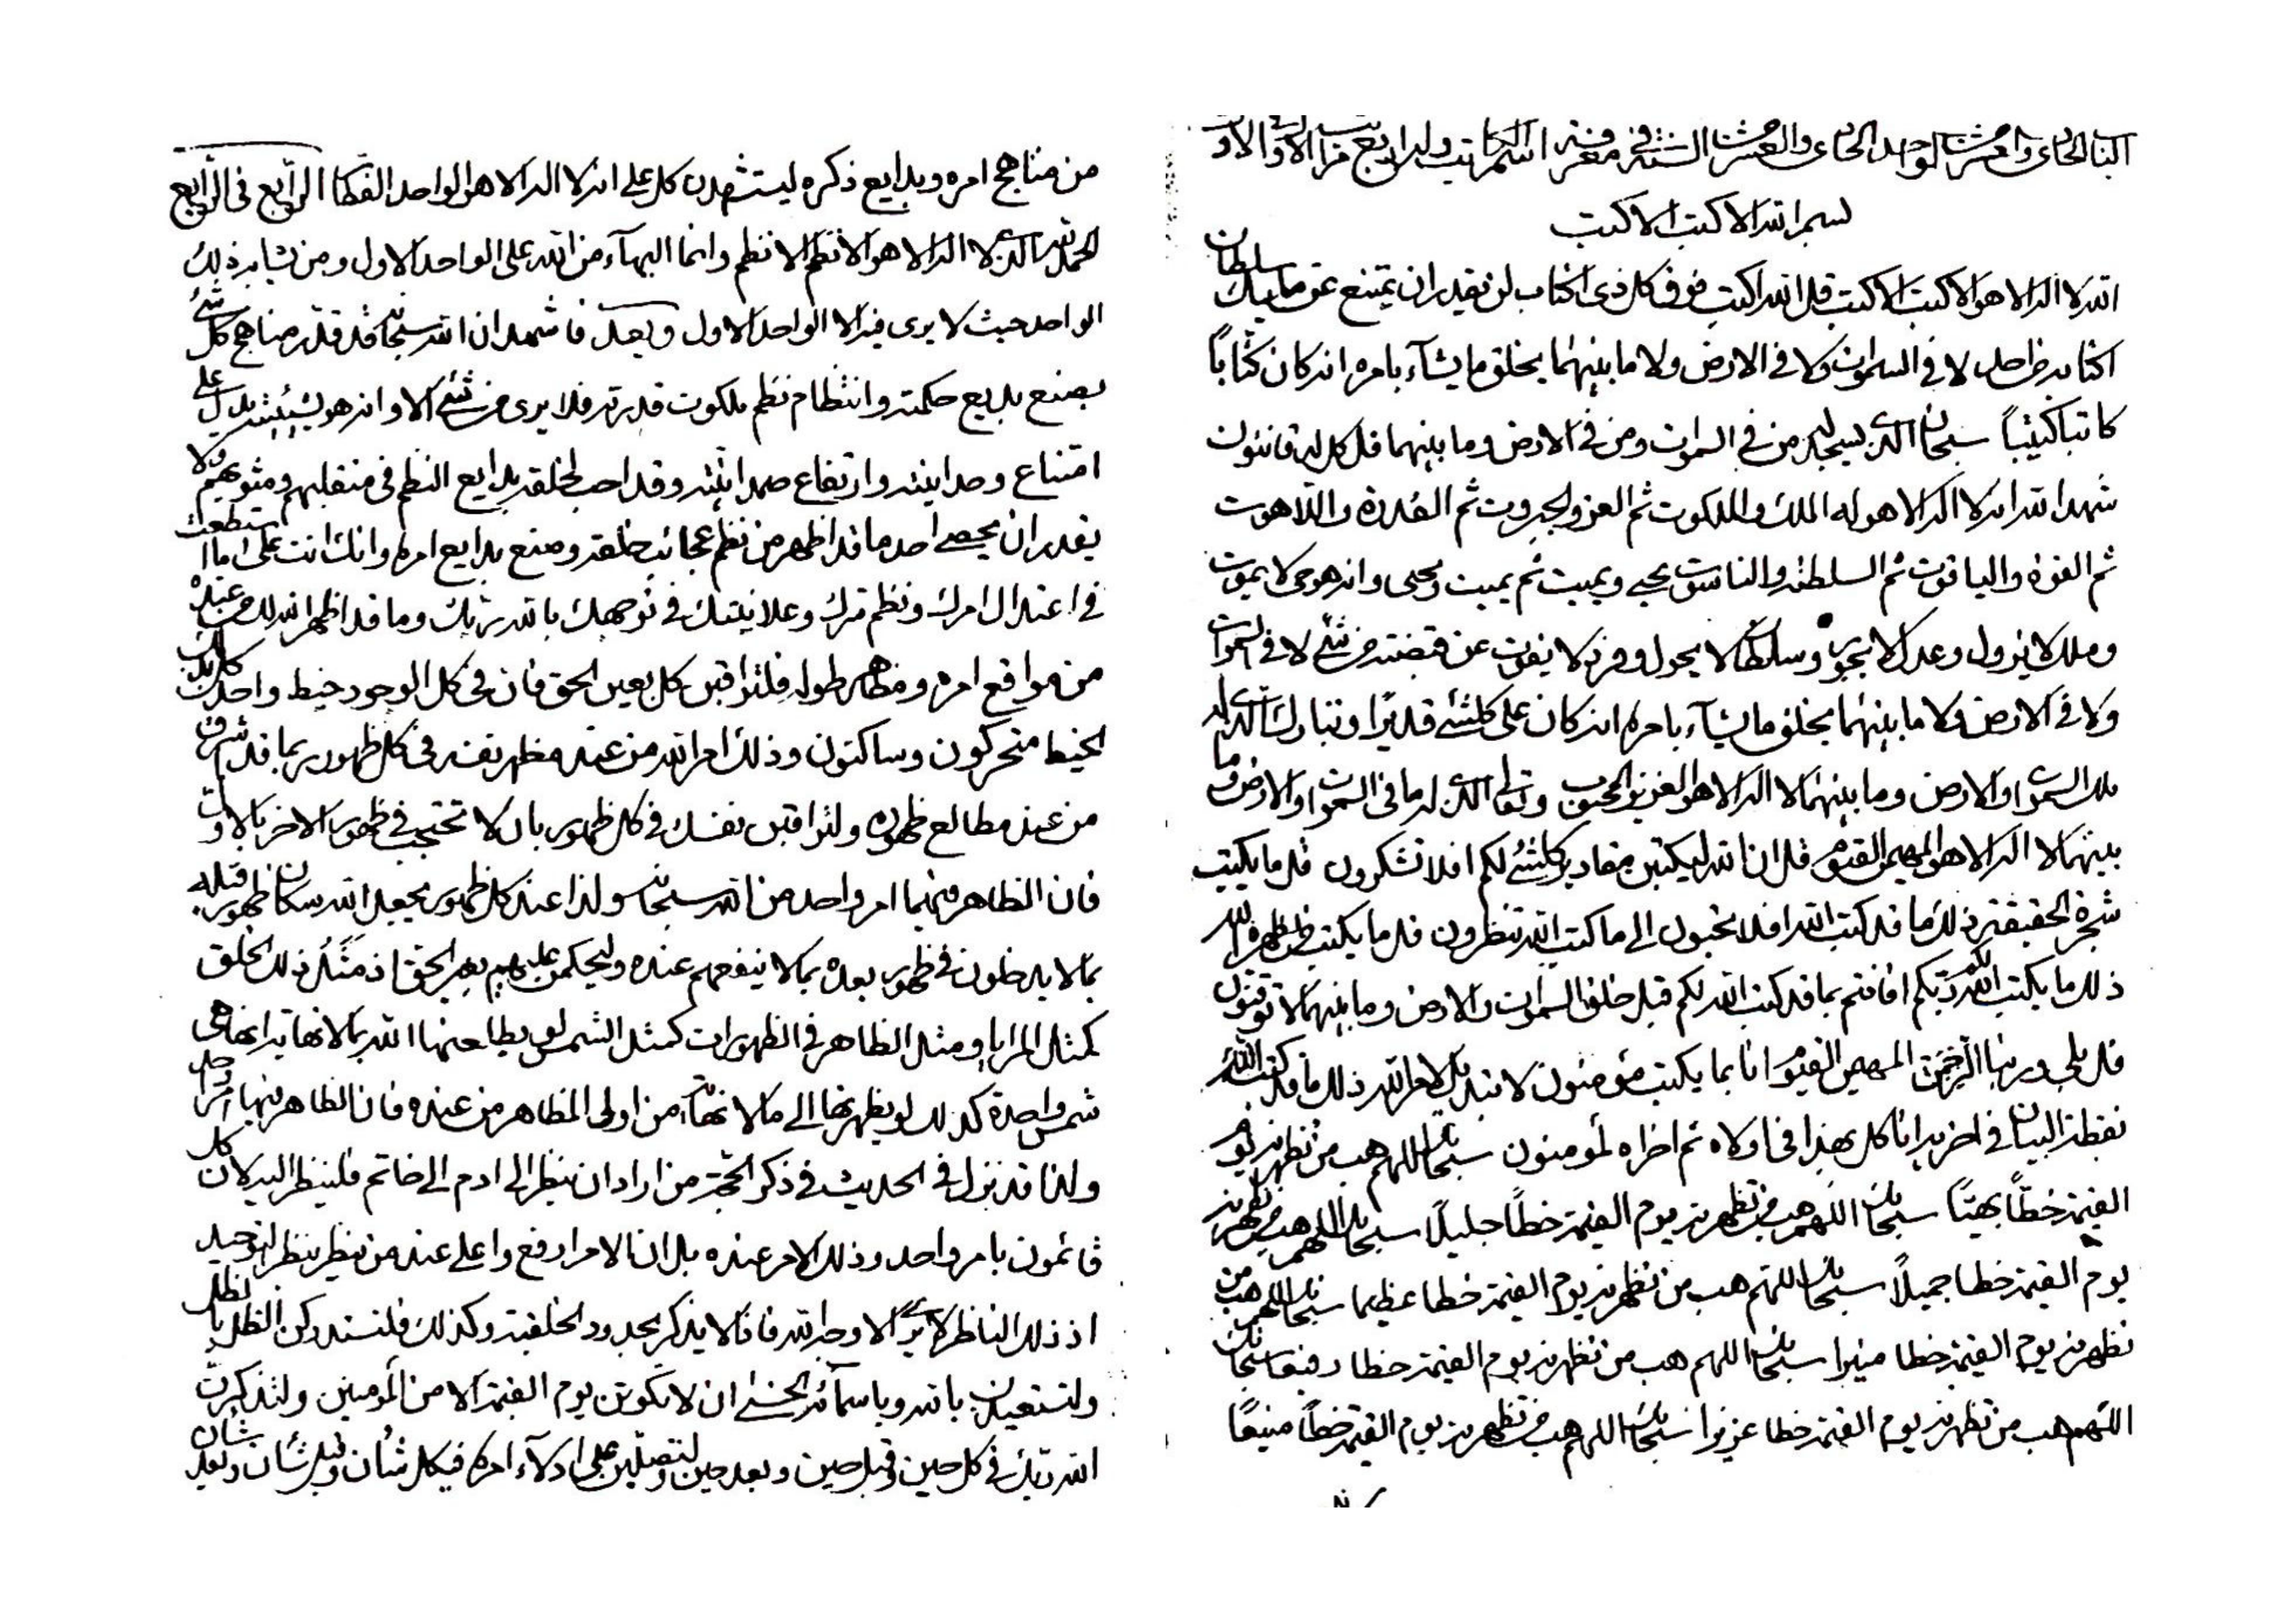 بسم الله الاكتب الاكتب
الله لا اله الا هو الاكتب الاكتب قل الله اكتب فوق كل ذى اكتاب لن يقدر ان يمتنع عن مليك سلطان
اكتابه من احد لا فى السموات ولا فى الارض ولا ما بينهما يخلق ما يشآء بامره انه كان كتاباً
كاتبا كتيباً سبحان الذى يسجد له من فى السموات ومن فى الارض وما بينهما قل كل له قانتون
شهد الله انه لا اله الا هو له الملك والملكوت ثم العز والجبروت ثم القدرة واللاهوت
ثم القوة والياقوت ثم السلطنة والناسوت يحيى ويميت ثم يميت ويحيى وانه هو حى لا يموت
وملك لا يزول وعدل لا يجور وسلطان لا يحول وفرد لا يفوت عن قبضته من شئ لا فى السموات
ولا فى الارض ولا ما بينهما يخلق ما يشآء بامره انه كان على كلشئ قديرا وتبارك الذى له
ملك السموات والارض وما بينهما لا اله الا هو العزيز المحبوب وتعالى الذى له ما فى السموات والارض وما
بينهما لا اله الا هو المهيمن القيوم قل ان الله ليكتبن مقادير كلشئ لكم افلا تشكرون قل ما يكتب
شجرة الحقيقة ذلك ما قد كتب الله افلا تحبون الى ما كتب الله تنظرون قل ما يكتب من يظهره الله
ذلك ما يكتب الله ربكم افانتم بما قد كتب الله لكم قبل خلق السموات والارض وما بينهما لا توقنون
قل بلى وربنا الرحمن المهيمن القيوم انا بما يكتب مؤمنون لا تبديل لامر الله ذلك ما قد كتب الله
نقطة البيان فى اخريه انا كل بهذا فى اولاه ثم اخراه لمؤمنون سبحانك اللهم هب من تظهرنه يوم
القيمة خطاً بهيّاً سبحانك اللهم هب من تظهرنه يوم القيمة خطاً جليلاً سبحانك اللهم هب من تظهرنه
يوم القيمة خطا جميلاً سبحانك اللهم هب من تظهرنه يوم القيمة خطا عظيما سبحانك اللهم هب من
تظهرنه يوم القيمة خطا منيرا سبحانك اللهم هب من تظهرنه يوم القيمة خطا رفيعا سبحانك
اللهم هب من تظهرنه يوم القيمة خطا عزيزا سبحانك اللهم هب من تظهرنه يوم القيمة خطاً منيعًا
من مناهج امره وبدايع ذكره ليستشهدن كل على انه لا اله الا هو الواحد الرابع فى الرابع
الحمد لله الذى لا اله الا هو الانظم الانظم وانما البهآء من الله على الواحد الاول ومن يشابه ذلك
الواحد حيث لا يرى فيه الا الواحد الاول وبعد فاشهد ان الله سبحانه قد قدر مناهج كل شئ
بصنع بديع حكمته وانتظام نظم ملكوت قدرته فلا يرى من شئ الا وانه هو بشيئيته يدل على
امتناع وحدانيته وارتفاع صمدانيته وقد احب لخلقه بدايع النظم فى منقلبهم ومثويهم ولا
يقدر ان يحصى احد ما قد اظهر من نظم عجائب خلقه وصنع بدايع امره وانك انت على ما استطعت
فى اعتدال امرك ونظم سرك وعلانيتك فى توجهك بالله ربك وما قد اظهر الله لك من عنده
من مواقع امره ومظاهر طوله فلتراقبن كل بعين الحق فان فى كل الوجود خيط واحد كل بذلك
الخيط متحركون وساكنون وذلك امر الله من عند مظهر نفسه فى كل ظهور بما قد اشرق
من عند مطالع ظهوره ولتراقبن نفسك فى كل ظهور بان لا تحتجب فى ظهور الاخر بالاول
فان الظاهر فيهما امر واحد من الله سبحانه ولذا عند كل ظهور يجعل الله سكان ظهور قبله
بما لا يدخلون فى ظهور بعده بما لا ينفعهم عنده وليحكمن عليهم بغير الحق اذ مثل ذلك الخلق
كمثل المرايا ومثل الظاهر فى الظهورات كمثل الشمس لو يطلعنها الله بما لا نهاية انها هى
شمس واحدة كذلك لو يظهرنها الى ما لا نهاية من اولى المظاهر من عنده فان الظاهر فيها امر واحد
ولذا قد نزل فى الحديث فى ذكر الحجة من اراد ان ينظر الى ادم الى خاتم فلينظر اليه لان كل
قائمون بامر واحد وذلك الامر عنده بل ان الامر ارفع واعلى عند من ينظر بنظر التوحيد
اذ ذلك الناظر لا يرى الا وجه الله فانه لا يذكر بحدود الخلقية وكذلك فلتستدركن النظر بالنظر
ولتستعينن بالله وباسمآئه الحسنى ان لا تكونن يوم القيمة الا من المؤمنين ولتذكرن
الله ربك فى كل حين وقبل حين وبعد حين ولتصلين على ادلآء امره فى كل شان وقبل شان وبعد شان